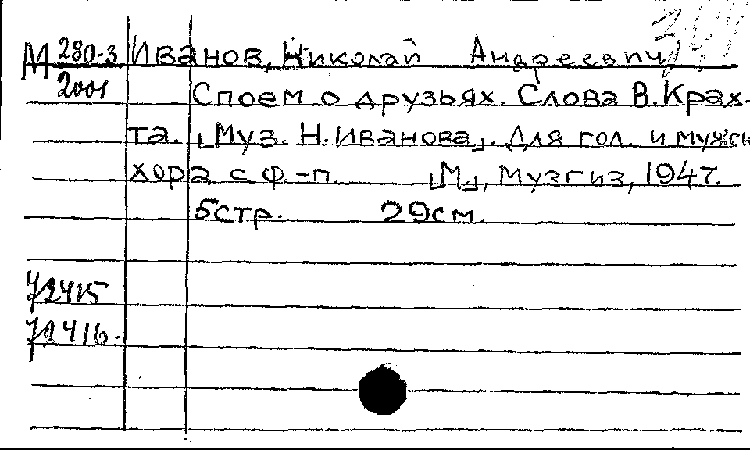 М 280-3 Иванов, Николай Андреевич
2001 Споем о друзьях. Слова В. Крах-
та. [Муз. Н. Иванова]. Для гол. и мужск
хора с ф.-п. [М], Музгиз, 1947.
5стр. 29см.
72415
72416.